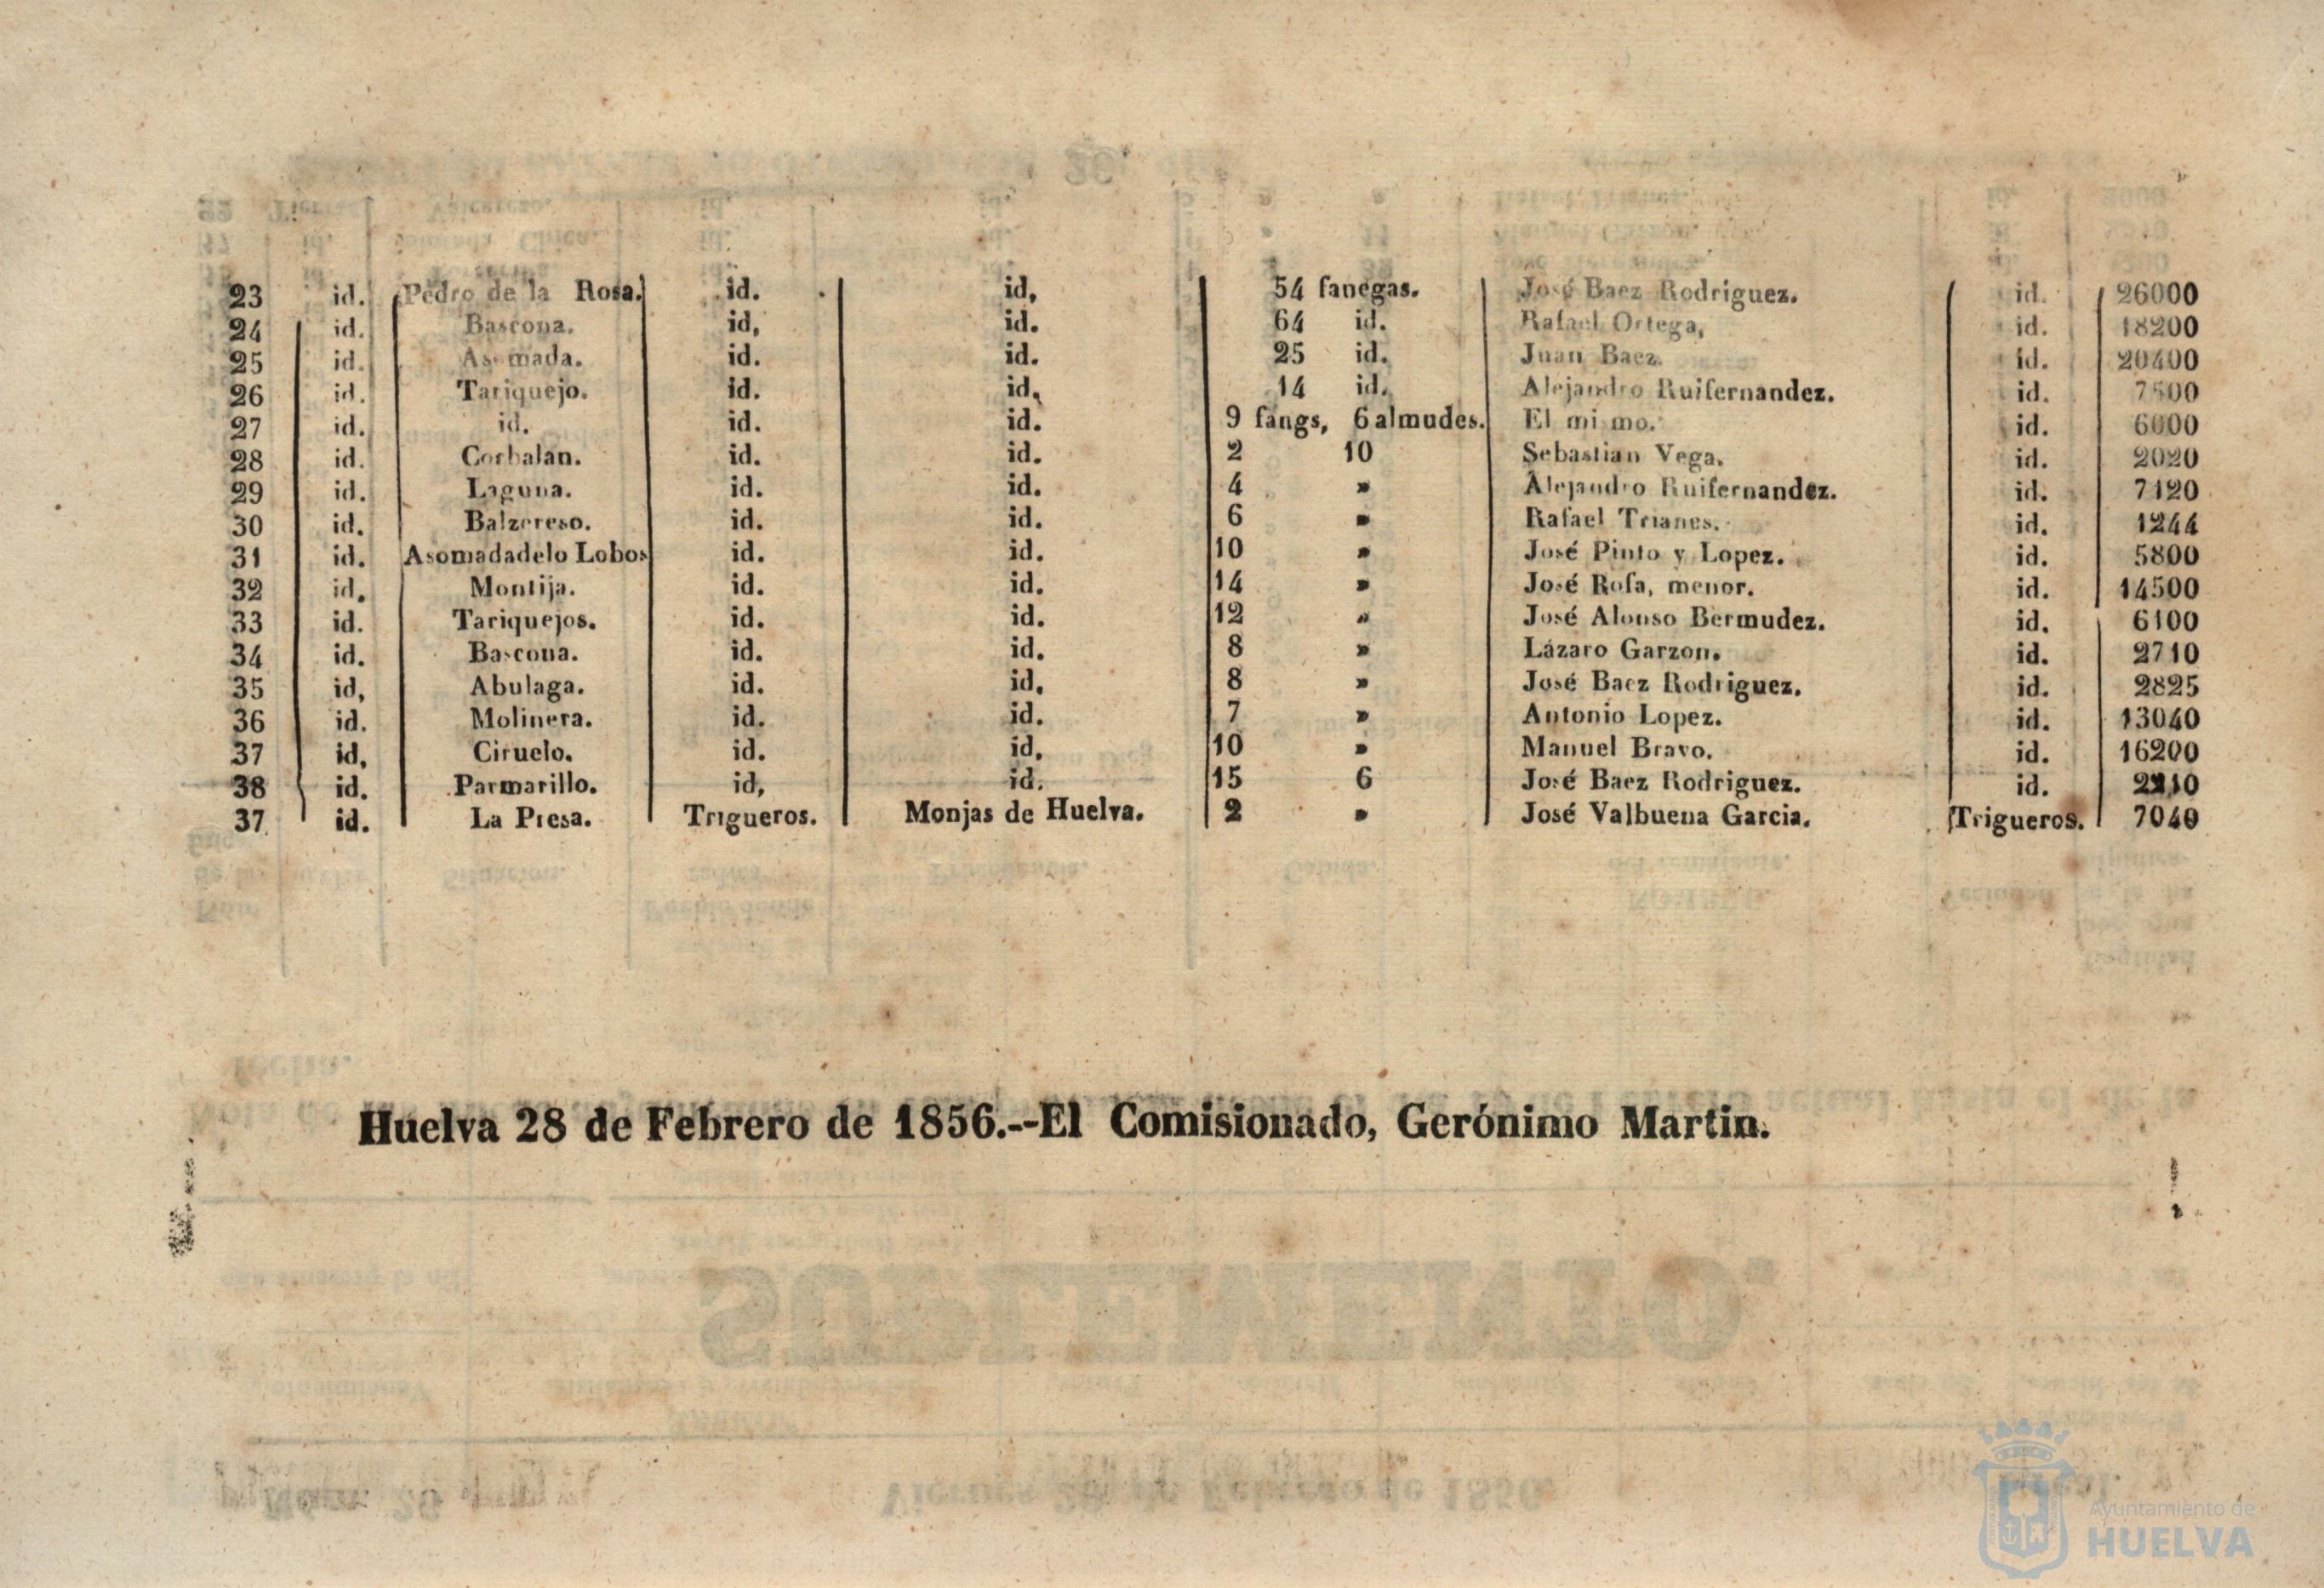 23 id. Pedro de la Rosa. id. id, 54 fanegas. José Baez Rodriguez. id. 26000
24 id. Bascona. id, id. 64 id. Rafael Ortega, id. 18200
25 id. Asomada. id. id. 25 id. Juan Baez. id. 20400
26 id. Tariquejo. id. id, 14 id. Alejandro Ruifernandez. id. 7500
27 id. id. id. id. 9 fangs, 6 almudes. El mi mo. id. 6000
28 id. Corbalan. id. id. 2 10 Sebastian Vega. id. 2020
29 id. Laguna. id. id. 4 » Alejandro Ruifernandez. id. 7120
30 id. Balzereso. id. id. 6 » Rafael Trianes. id. 1244
31 id. Asomadadelo Lobos id. id. 10 » José Pinto y Lopez. id. 5800
32 id. Montija. id. id. 14 » José Rofa, menor. id. 14500
33 id. Tariquejos. id. id. 12 » José Alonso Bermudez. id. 6100
34 id. Bascona. id. id. 8 » Lázaro Garzon. id. 2710
35 id, Abulaga. id. id, 8 » José Baez Rodriguez. id. 2825
36 id. Molinera. id. id. 7 » Antonio Lopez. id. 13040
37 id, Ciruelo. id. id. 10 » Manuel Bravo. id. 16200
38 id. Parmarillo. id, id. 15 6 José Baez Rodriguez. id.
37 id. La Presa. Trigueros. Monjas de Huelva. 2 » José Valbuena Garcia. Trigueros. 7040
Huelva 28 de Febrero de 1856.--El Comisionado, Gerónimo Martin.
Ayuntamiento de
HUELVA